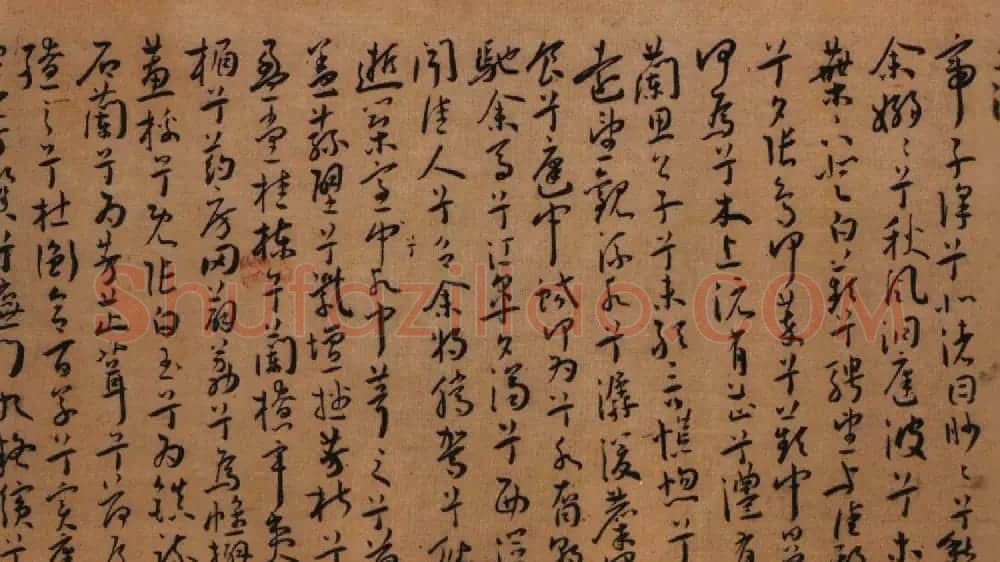 帝子降兮北渚目眇〻兮愁
余嫋〻兮秋風洞庭波兮木
葉下登白薠兮騁望与佳期
兮夕張鳥何萃兮蘋中罾
何為兮木上沅有芷兮澧有
蘭思公子兮未敢言慌惚兮
遠望觀流水兮潺湲麋何
食兮庭中蛟何為兮水裔朝
馳余馬兮江皋夕濟兮西澨
聞佳人兮召余將騰駕兮偕
逝築室兮中水中葺之兮荷
蓋蓀壁兮紫壇播芳椒兮
盈堂桂棟兮蘭橑辛夷
楣兮葯房罔薜荔兮為帷擗
蕙櫋兮既張白玉兮為鎮疏
石蘭兮為芳芷葺兮荷屋
繚之兮杜衡合百草兮實庭
芳馨兮廡門九嶷繽兮
Shufaziliao.COM